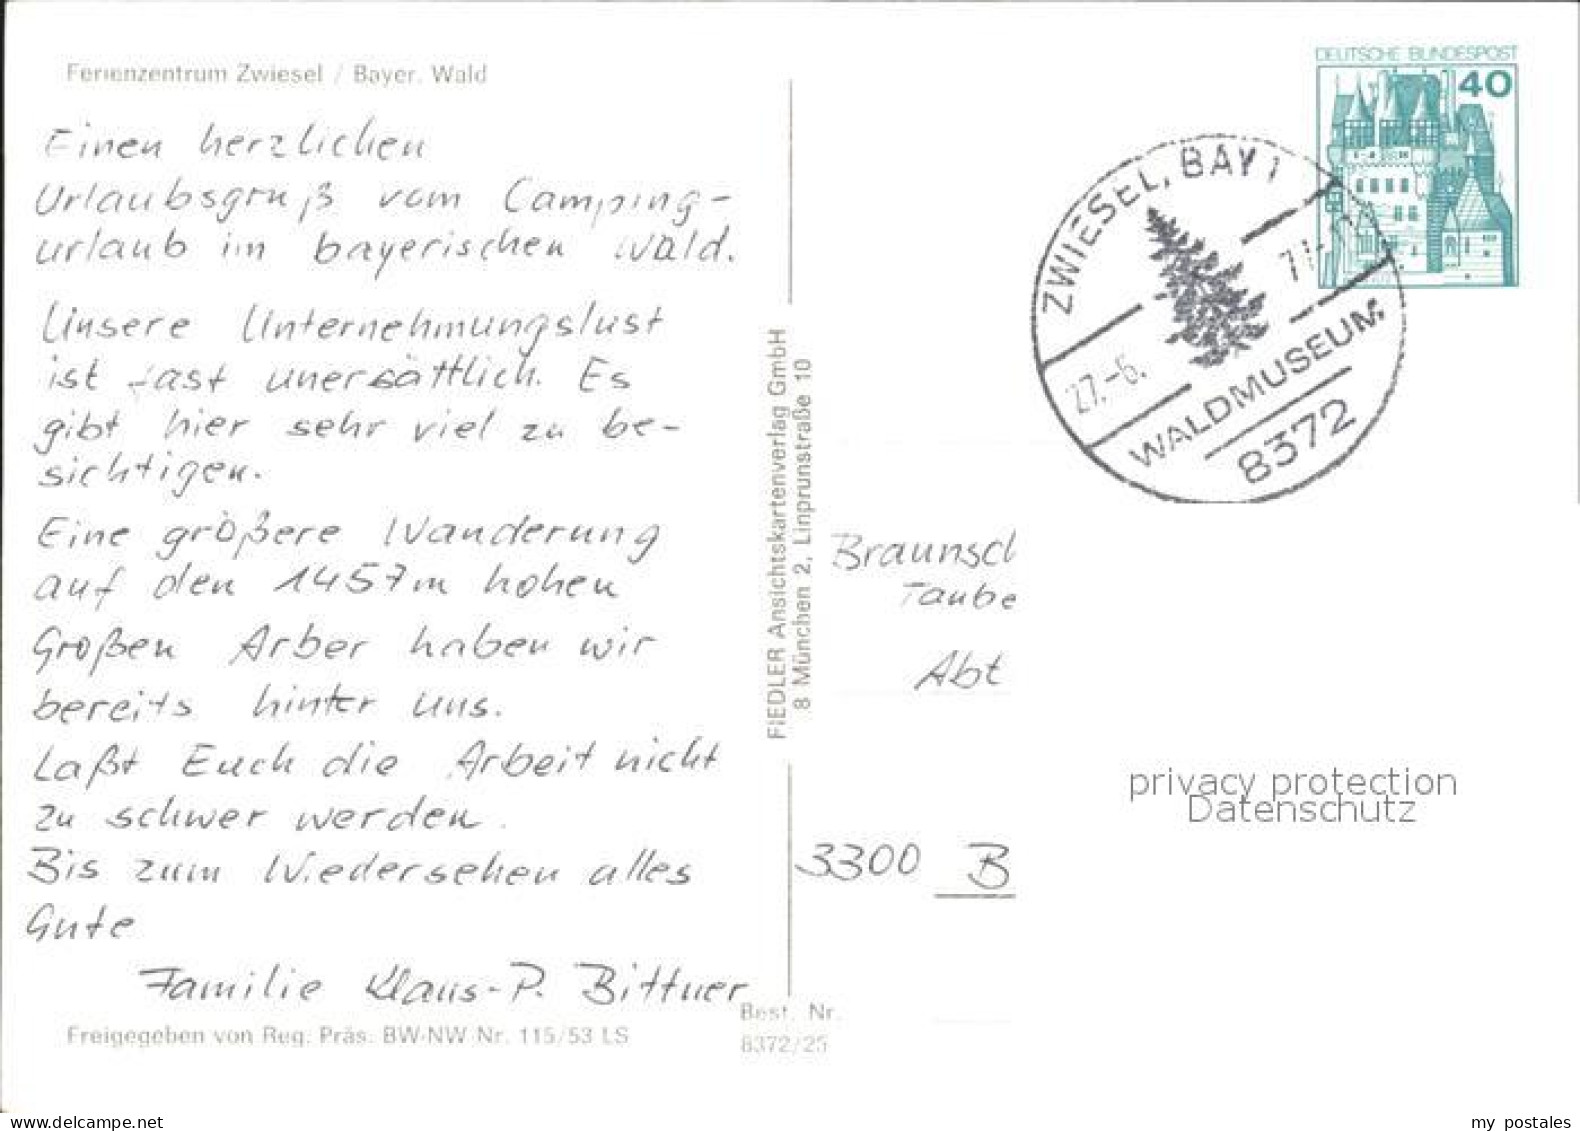 Ferienzentrum Zwiesel / Bayer. Wald
Einen herzlichen
Urlaubsgruß vom Camping-
urlaub im bayerischen Wald.
Unsere Unternehmungslust
ist fast unersättlich. Es
gibt hier sehr viel zu be-
sichtigen.
Eine größere Wanderung
auf den 1457m hohen
Großen Arber haben wir
bereits hinter uns.
Laßt Euch die Arbeit nicht
zu schwer werden.
Bis zum Wiedersehen alles
Gute
Familie Klaus-P. Bittner
Freigegeben von Reg. Präs. BW-NW Nr. 115/53 LS
FIEDLER Ansichtskartenverlag GmbH
8 München 2, Linprunstraße 10
Best. Nr.
8372/25
DEUTSCHE BUNDESPOST
40
ZWIESEL, BAY 1
27.-6.
WALDMUSEUM
8372
Braunsch
Taube
Abt
3300 B
privacy protection
Datenschutz
www.delcampe.net
my_postales